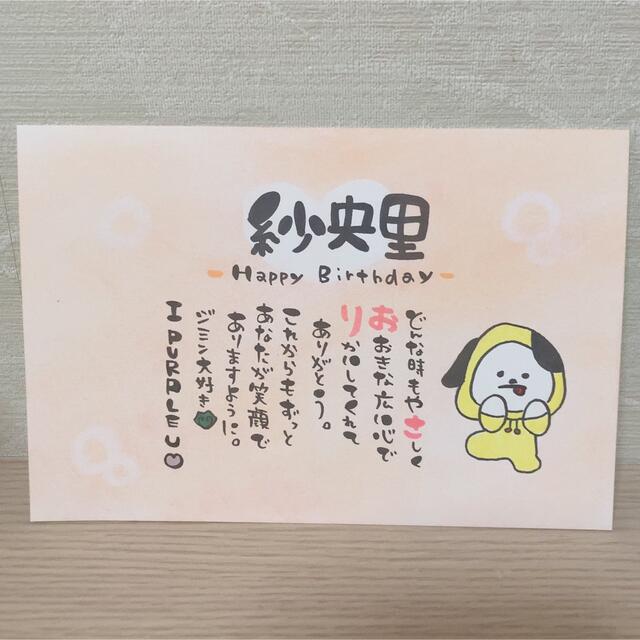 紗央里
Happy Birthday
どんな時もやさしく
おおきな広い心で
りかいしてくれて
ありがとう。
これからもずっと
あなたが笑顔で
ありますように。
ジミン大好き
I PURPLE U